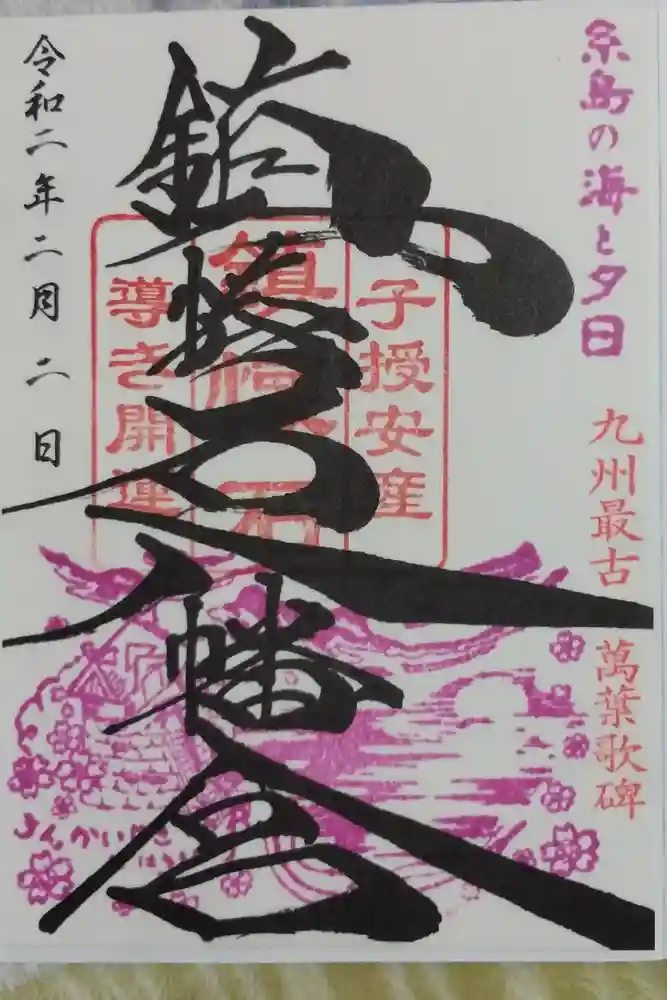 糸島の海と夕日
九州最古 萬葉歌碑
子授安産
鎮懐石
導き開運
鎮懐石八幡宮
令和二年二月二日
ちんかいせき